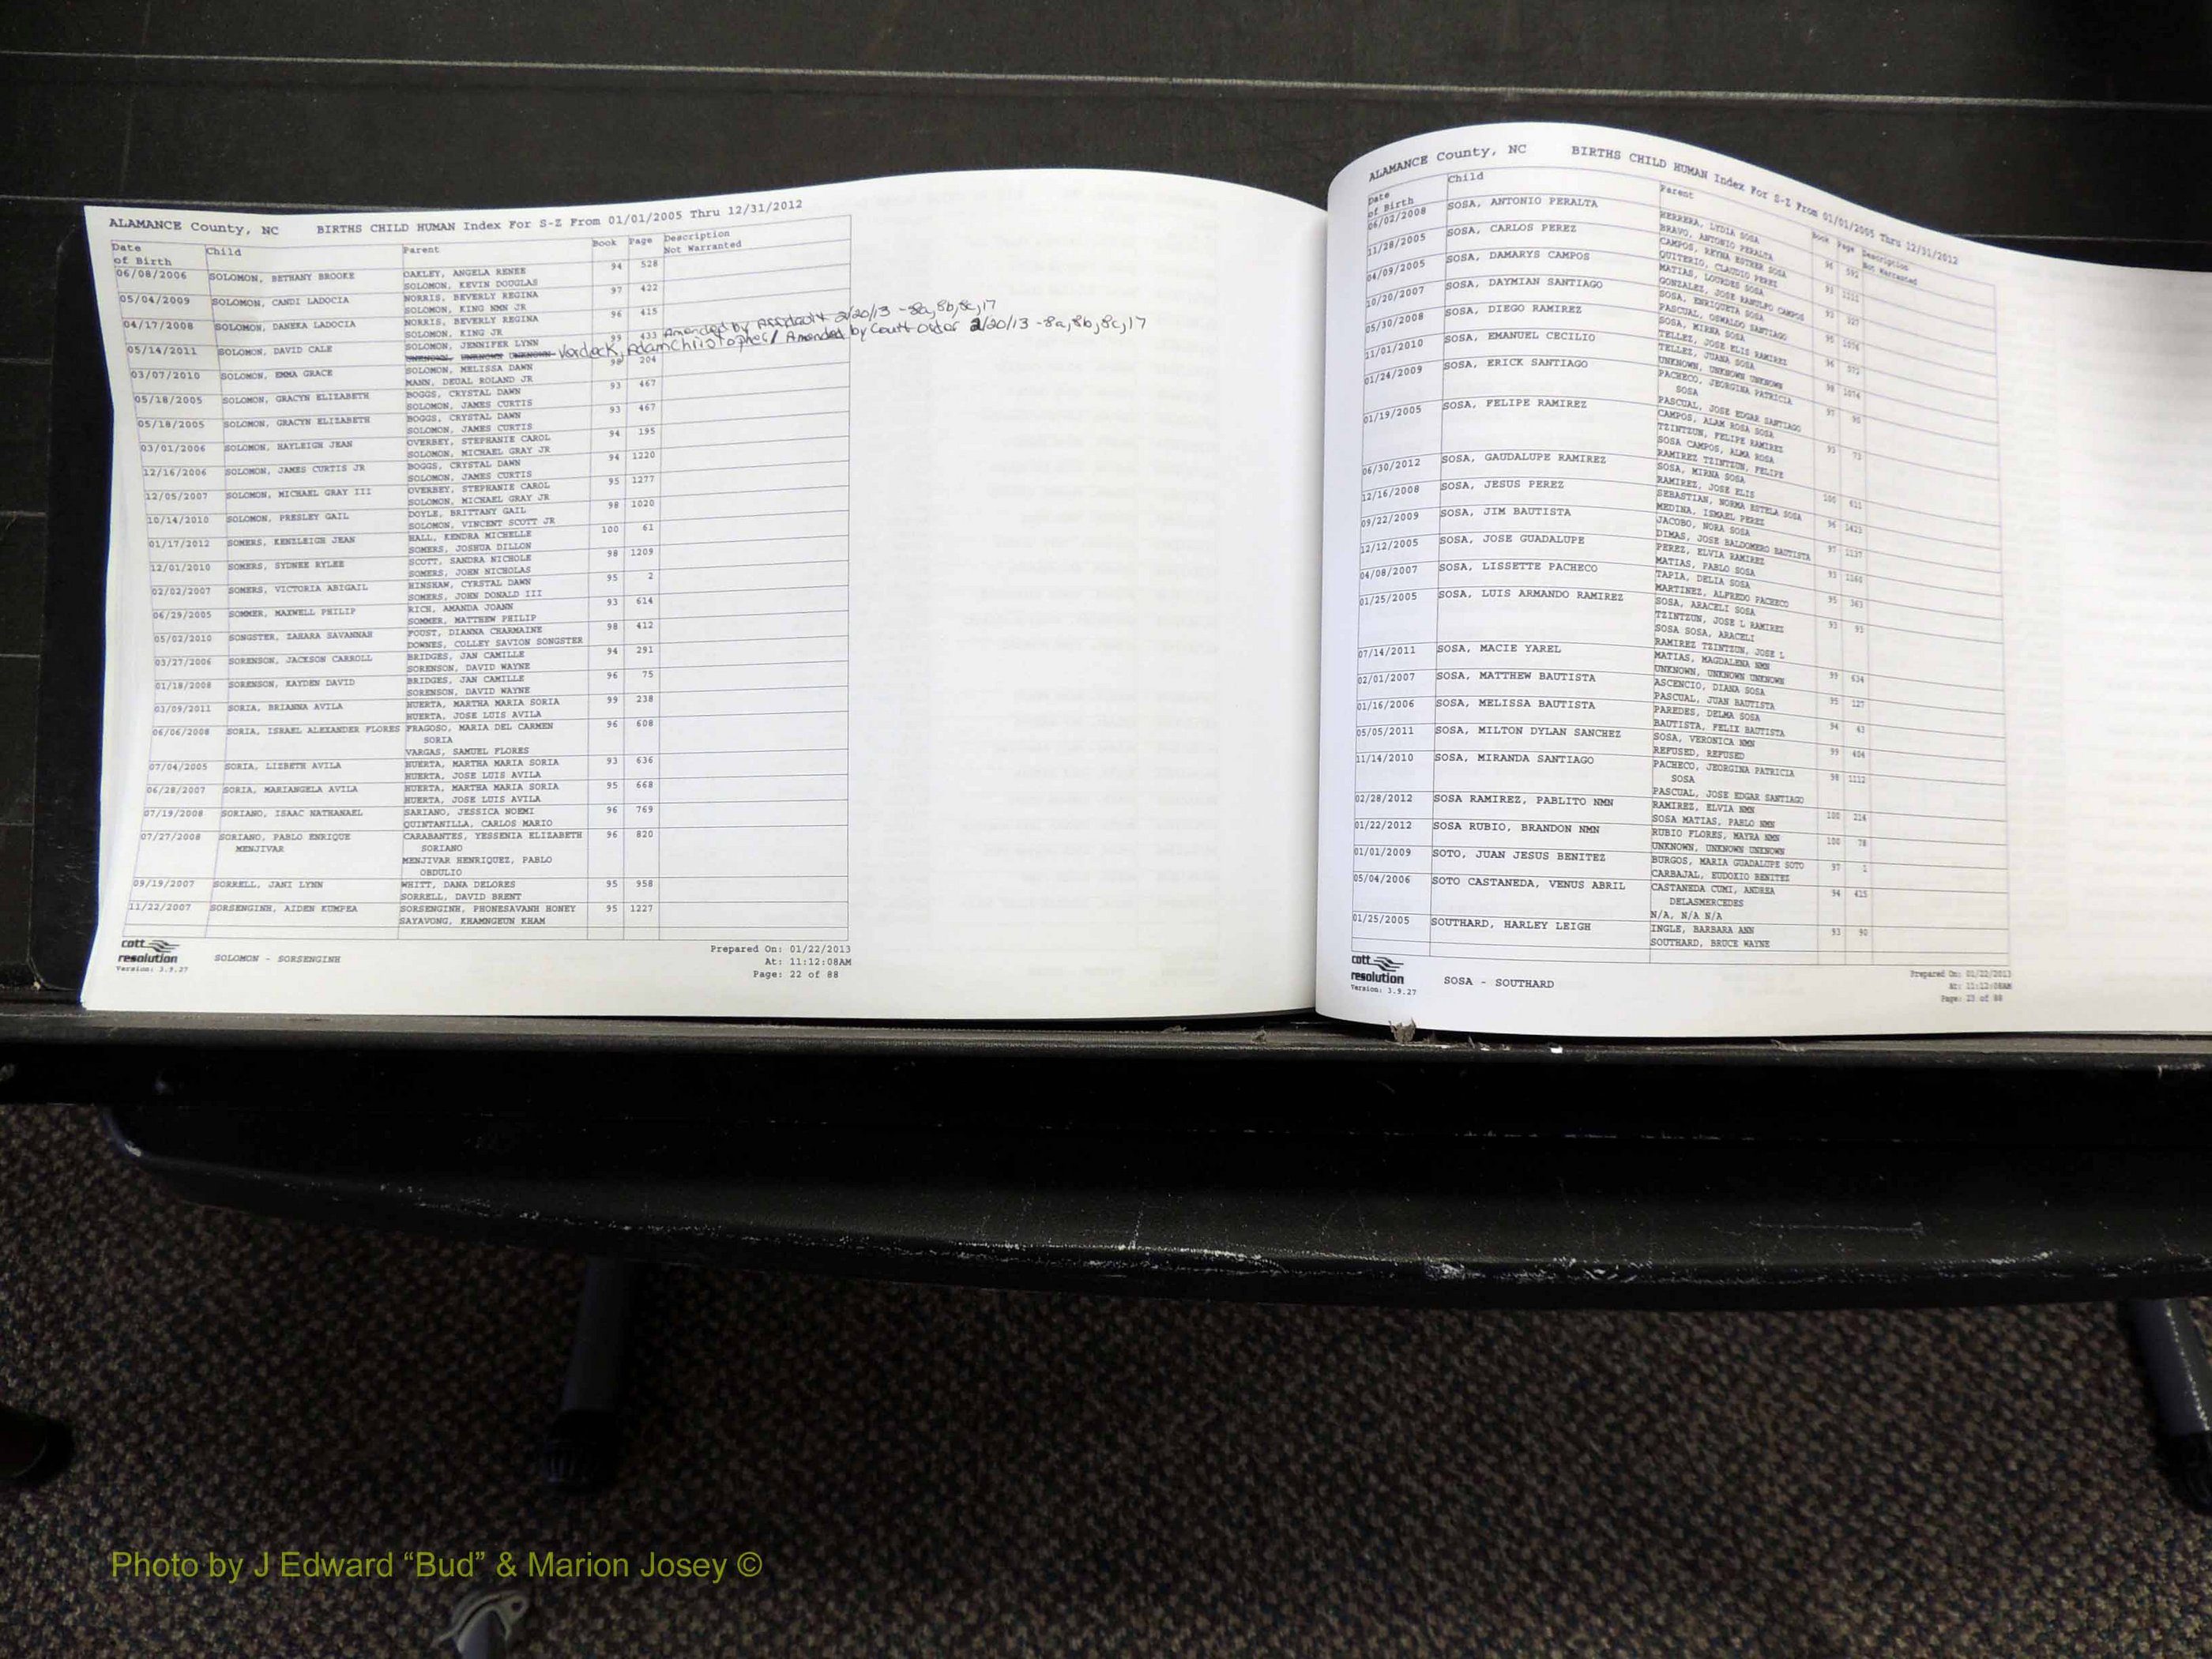 ALAMANCE County, NC BIRTHS CHILD HUMAN Index For S-Z From 01/01/2005 Thru 12/31/2012
Date of Birth Child Parent Book Page Description Not Warranted
06/08/2006 SOLOMON, BETHANY BROOKE OAKLEY, ANGELA RENEE 94 528
SOLOMON, KEVIN DOUGLAS
05/04/2009 SOLOMON, CANDI LADOCIA NORRIS, BEVERLY REGINA 97 422
SOLOMON, KING NMN JR
04/17/2008 SOLOMON, DANEKA LADOCIA NORRIS, BEVERLY REGINA 96 415
SOLOMON, KING JR
05/14/2011 SOLOMON, DAVID CALE SOLOMON, JENNIFER LYNN 99 433 Amended by Affidavit 2/20/13 -8a,8b,8c,17
UNKNOWN, UNKNOWN UNKNOWN Adam Christopher / Amended by Court order 2/20/13 -8a,8b,8c,17
03/07/2010 SOLOMON, EMMA GRACE SOLOMON, MELISSA DAWN 98 204
MANN, DEUAL ROLAND JR
05/18/2005 SOLOMON, GRACYN ELIZABETH BOGGS, CRYSTAL DAWN 93 467
SOLOMON, JAMES CURTIS
05/18/2005 SOLOMON, GRACYN ELIZABETH BOGGS, CRYSTAL DAWN 93 467
SOLOMON, JAMES CURTIS
03/01/2006 SOLOMON, HAYLEIGH JEAN OVERBEY, STEPHANIE CAROL 94 195
SOLOMON, MICHAEL GRAY JR
12/16/2006 SOLOMON, JAMES CURTIS JR BOGGS, CRYSTAL DAWN 94 1220
SOLOMON, JAMES CURTIS
12/05/2007 SOLOMON, MICHAEL GRAY III OVERBEY, STEPHANIE CAROL 95 1277
SOLOMON, MICHAEL GRAY JR
10/14/2010 SOLOMON, PRESLEY GAIL DOYLE, BRITTANY GAIL 98 1020
SOLOMON, VINCENT SCOTT JR
01/17/2012 SOMERS, KENZLEIGH JEAN HALL, KENDRA MICHELLE 100 61
SOMERS, JOSHUA DILLON
12/01/2010 SOMERS, SYDNEE RYLEE SCOTT, SANDRA NICHOLE 98 1209
SOMERS, JOHN NICHOLAS
02/02/2007 SOMERS, VICTORIA ABIGAIL HINSHAW, CYRSTAL DAWN 95 2
SOMERS, JOHN DONALD III
06/29/2005 SOMMER, MAXWELL PHILIP RICH, AMANDA JOANN 93 614
SOMMER, MATTHEW PHILIP
05/02/2010 SONGSTER, ZAHARA SAVANNAH FOUST, DIANNA CHARMAINE 98 412
DOWNES, COLLEY SAVION SONGSTER
03/27/2006 SORENSON, JACKSON CARROLL BRIDGES, JAN CAMILLE 94 291
SORENSON, DAVID WAYNE
01/18/2008 SORENSON, KAYDEN DAVID BRIDGES, JAN CAMILLE 96 75
SORENSON, DAVID WAYNE
03/09/2011 SORIA, BRIANNA AVILA HUERTA, MARTHA MARIA SORIA 99 238
HUERTA, JOSE LUIS AVILA
06/06/2008 SORIA, ISRAEL ALEXANDER FLORES FRAGOSO, MARIA DEL CARMEN 96 608
SORIA
VARGAS, SAMUEL FLORES
07/04/2005 SORIA, LIZBETH AVILA HUERTA, MARTHA MARIA SORIA 93 636
HUERTA, JOSE LUIS AVILA
06/28/2007 SORIA, MARIANGELA AVILA HUERTA, MARTHA MARIA SORIA 95 668
HUERTA, JOSE LUIS AVILA
07/19/2008 SORIANO, ISAAC NATHANAEL SARIANO, JESSICA NOEMI 96 769
QUINTANILLA, CARLOS MARIO
07/27/2008 SORIANO, PABLO ENRIQUE CARABANTES, YESSENIA ELIZABETH 96 820
MENJIVAR SORIANO
MENJIVAR HENRIQUEZ, PABLO
OBDULIO
09/19/2007 SORRELL, JANI LYNN WHITT, DANA DELORES 95 958
SORRELL, DAVID BRENT
11/22/2007 SORSENGINH, AIDEN KUMPEA SORSENGINH, PHONESAVANH HONEY 95 1227
SAYAVONG, KHAMNGEUN KHAM
cott resolution
Version: 3.9.27
SOLOMON - SORSENGINH
Prepared On: 01/22/2013
At: 11:12:08AM
Page: 22 of 88
ALAMANCE County, NC BIRTHS CHILD HUMAN Index For S-Z From 01/01/2005 Thru 12/31/2012
Date of Birth Child Parent Book Page Description Not Warranted
06/02/2008 SOSA, ANTONIO PERALTA HERRERA, LYDIA SOSA 96 592
BRAVO, ANTONIO PERALTA
11/28/2005 SOSA, CARLOS PEREZ CAMPOS, REYNA ESTHER SOSA 93
QUITERIO, CLAUDIO PEREZ
04/09/2005 SOSA, DAMARYS CAMPOS MATIAS, LOURDES SOSA 93 327
GONZALEZ, JOSE RANULFO CAMPOS
10/20/2007 SOSA, DAYMIAN SANTIAGO SOSA, ENRIQUETA SOSA 95
PASCUAL, OSWALDO SANTIAGO
05/30/2008 SOSA, DIEGO RAMIREZ SOSA, MIRNA SOSA 96 572
TELLEZ, JOSE ELIS RAMIREZ
11/01/2010 SOSA, EMANUEL CECILIO TELLEZ, JUANA SOSA 98 1074
UNKNOWN, UNKNOWN UNKNOWN
01/24/2009 SOSA, ERICK SANTIAGO PACHECO, JEORGINA PATRICIA 97 90
SOSA
PASCUAL, JOSE EDGAR SANTIAGO
01/19/2005 SOSA, FELIPE RAMIREZ CAMPOS, ALAM ROSA SOSA 93 73
TZINTZUN, FELIPE RAMIREZ
SOSA CAMPOS, ALMA ROSA
RAMIREZ TZINTZUN, FELIPE
06/30/2012 SOSA, GAUDALUPE RAMIREZ SOSA, MIRNA SOSA 100 611
RAMIREZ, JOSE ELIS
12/16/2008 SOSA, JESUS PEREZ SEBASTIAN, NORMA ESTELA SOSA 96 1423
MEDINA, ISMAEL PEREZ
09/22/2009 SOSA, JIM BAUTISTA JACOBO, NORA SOSA 97 1137
DIMAS, JOSE BALDOMERO BAUTISTA
12/12/2005 SOSA, JOSE GUADALUPE PEREZ, ELVIA RAMIREZ 93 1166
MATIAS, PABLO SOSA
04/08/2007 SOSA, LISSETTE PACHECO TAPIA, DELIA SOSA 95 363
MARTINEZ, ALFREDO PACHECO
01/25/2005 SOSA, LUIS ARMANDO RAMIREZ SOSA, ARACELI SOSA 93 93
TZINTZUN, JOSE L RAMIREZ
SOSA SOSA, ARACELI
RAMIREZ TZINTZUN, JOSE L
07/14/2011 SOSA, MACIE YAREL MATIAS, MAGDALENA NMN 99 634
UNKNOWN, UNKNOWN UNKNOWN
02/01/2007 SOSA, MATTHEW BAUTISTA ASCENCIO, DIANA SOSA 95 127
PASCUAL, JUAN BAUTISTA
01/16/2006 SOSA, MELISSA BAUTISTA PAREDES, DELMA SOSA 94 43
BAUTISTA, FELIX BAUTISTA
05/05/2011 SOSA, MILTON DYLAN SANCHEZ SOSA, VERONICA NMN 99 404
REFUSED, REFUSED
11/14/2010 SOSA, MIRANDA SANTIAGO PACHECO, JEORGINA PATRICIA 98 1112
SOSA
PASCUAL, JOSE EDGAR SANTIAGO
02/28/2012 SOSA RAMIREZ, PABLITO NMN RAMIREZ, ELVIA NMN 100 214
SOSA MATIAS, PABLO NMN
01/22/2012 SOSA RUBIO, BRANDON NMN RUBIO FLORES, MAYRA NMN 100 78
UNKNOWN, UNKNOWN UNKNOWN
01/01/2009 SOTO, JUAN JESUS BENITEZ BURGOS, MARIA GUADALUPE SOTO 97 1
CARBAJAL, EUDOXIO BENITEZ
05/04/2006 SOTO CASTANEDA, VENUS ABRIL CASTANEDA CUMI, ANDREA 94 425
DELASMERCEDES
N/A, N/A N/A
01/25/2005 SOUTHARD, HARLEY LEIGH INGLE, BARBARA ANN 93 90
SOUTHARD, BRUCE WAYNE
cott resolution
Version: 3.9.27
SOSA - SOUTHARD
Prepared On: 01/22/2013
At: 11:12:08AM
Page: 23 of 88
Photo by J Edward “Bud” & Marion Josey ©